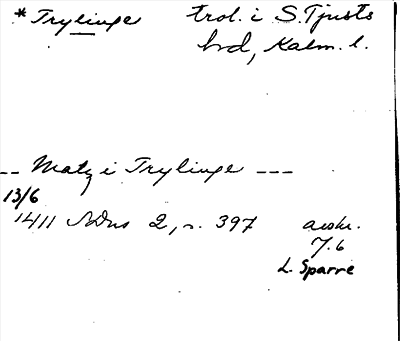 * Trylinge trol. i S. Tjusts
hd, Kalm. l.
-- Matz i Trylinge ---
13/6
1411 SDns 2, s. 397 avskr.
7.6
L. Sparre